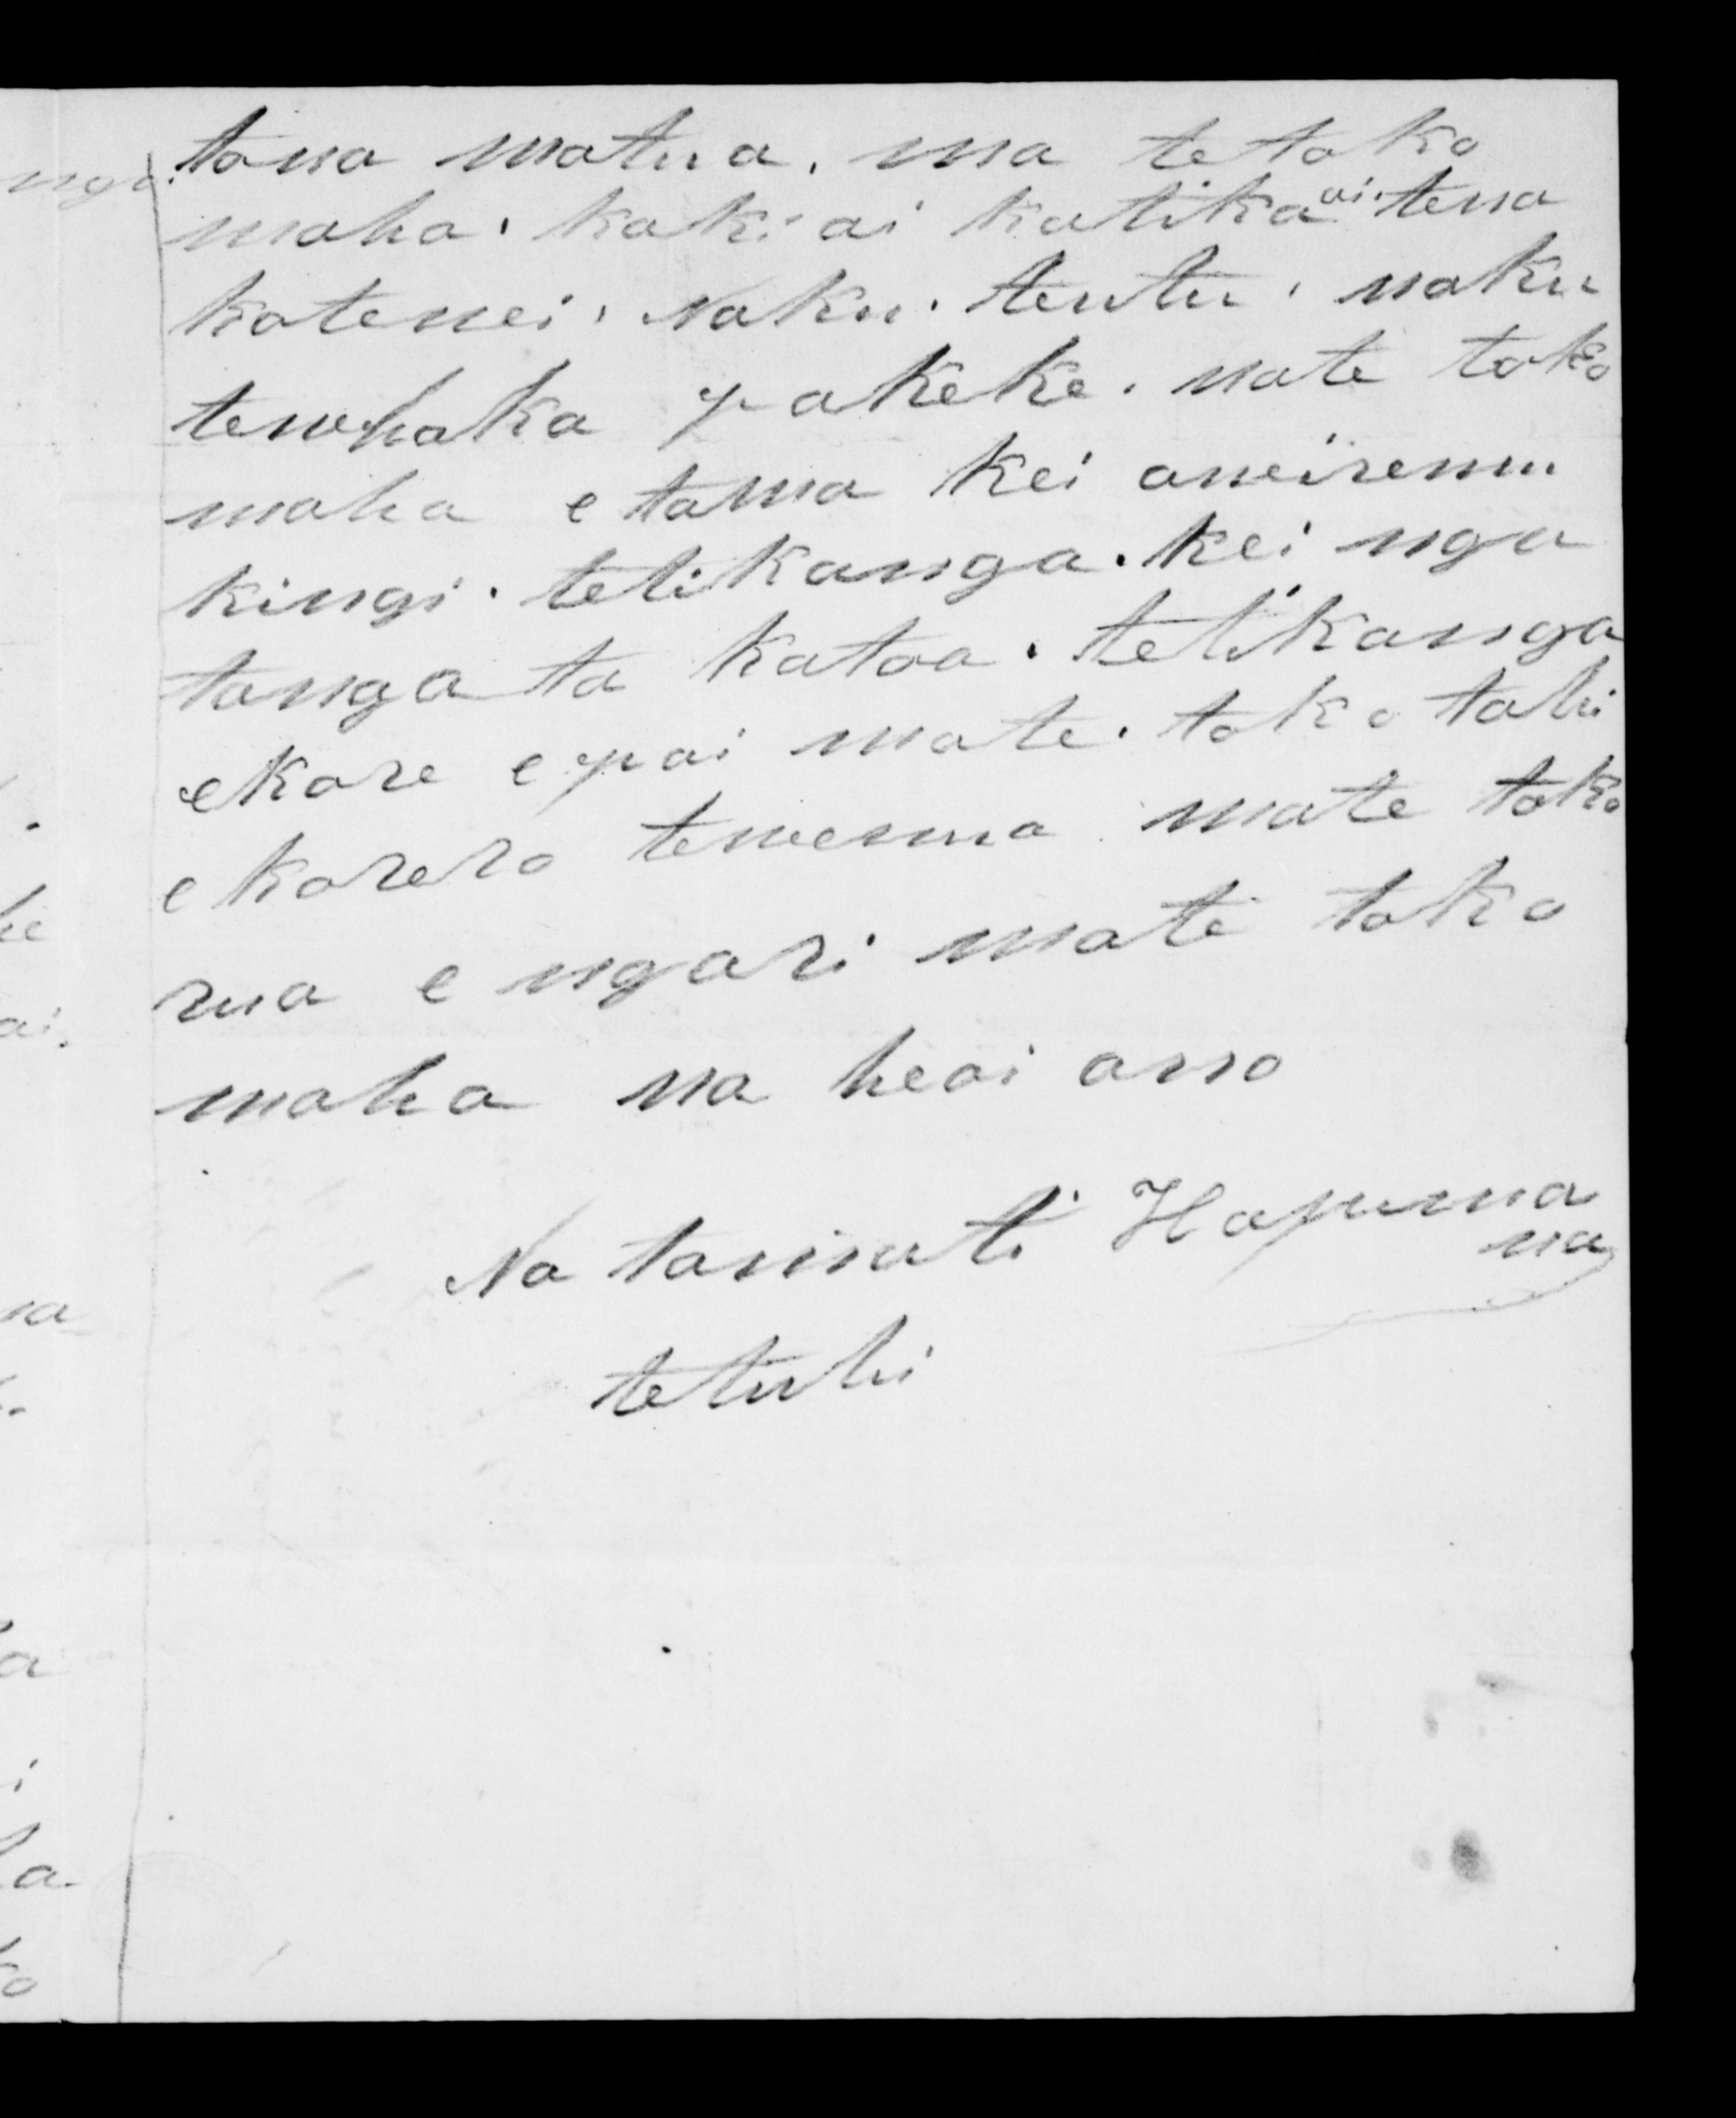 tona matua. ma te toko
maha. kaki ai katika ai. tena
kotenei. Naku. teutu. naku
tewhaka pakeke. mate toko
maha e tama kei aneiremu
kingi. tetikanga. kei nga
tanga ta katoa. tetikanga
ekore e pai mate. toko tahi
e korero tenenna mate toko
rua e ngari mate toko
maha na heoi ano
Na tamati Hapurona
na
tetuhi